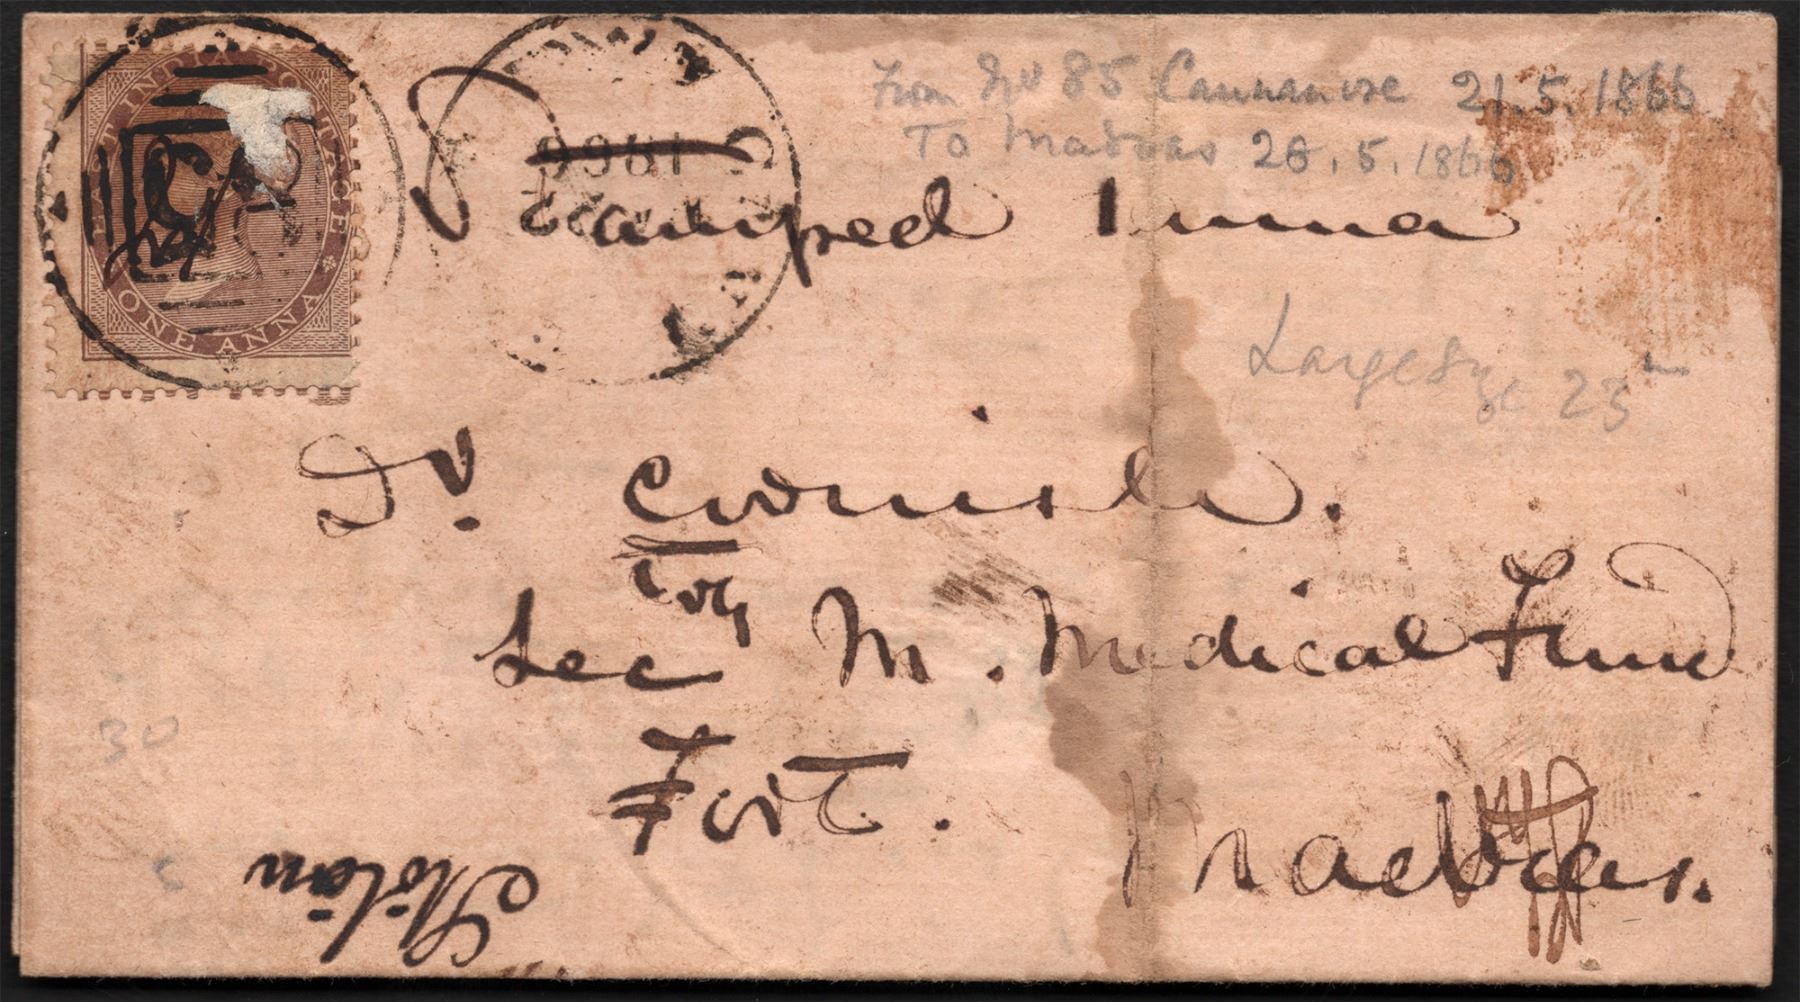 From No 85 Cannanore 21.5.1866
To Madras 28.5.1866
EAST INDIA POSTAGE
ONE ANNA
1866
Stamped 1 anna
Large Size 23
Dr. Cornish.
Sec M. Medical Fund
30
Fort.
Madras.